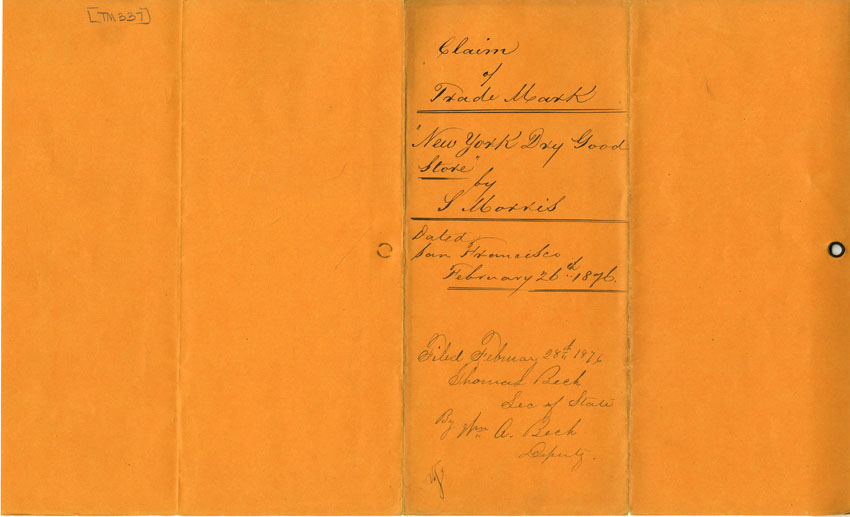 [TM 337]
Claim
of
Trade Mark
"New York Dry Good
Store"
by
S Morris
Dated
San Francisco
February 26th 1876.
Filed February 28th 1876
Thomas Beck
Sec of State
By Wm A. Beck
Deputy.